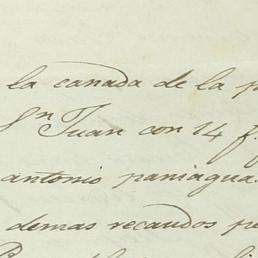 la canada de la p
Sn Juan con 14 f.
antonio paniagua.
demas recaudos pe